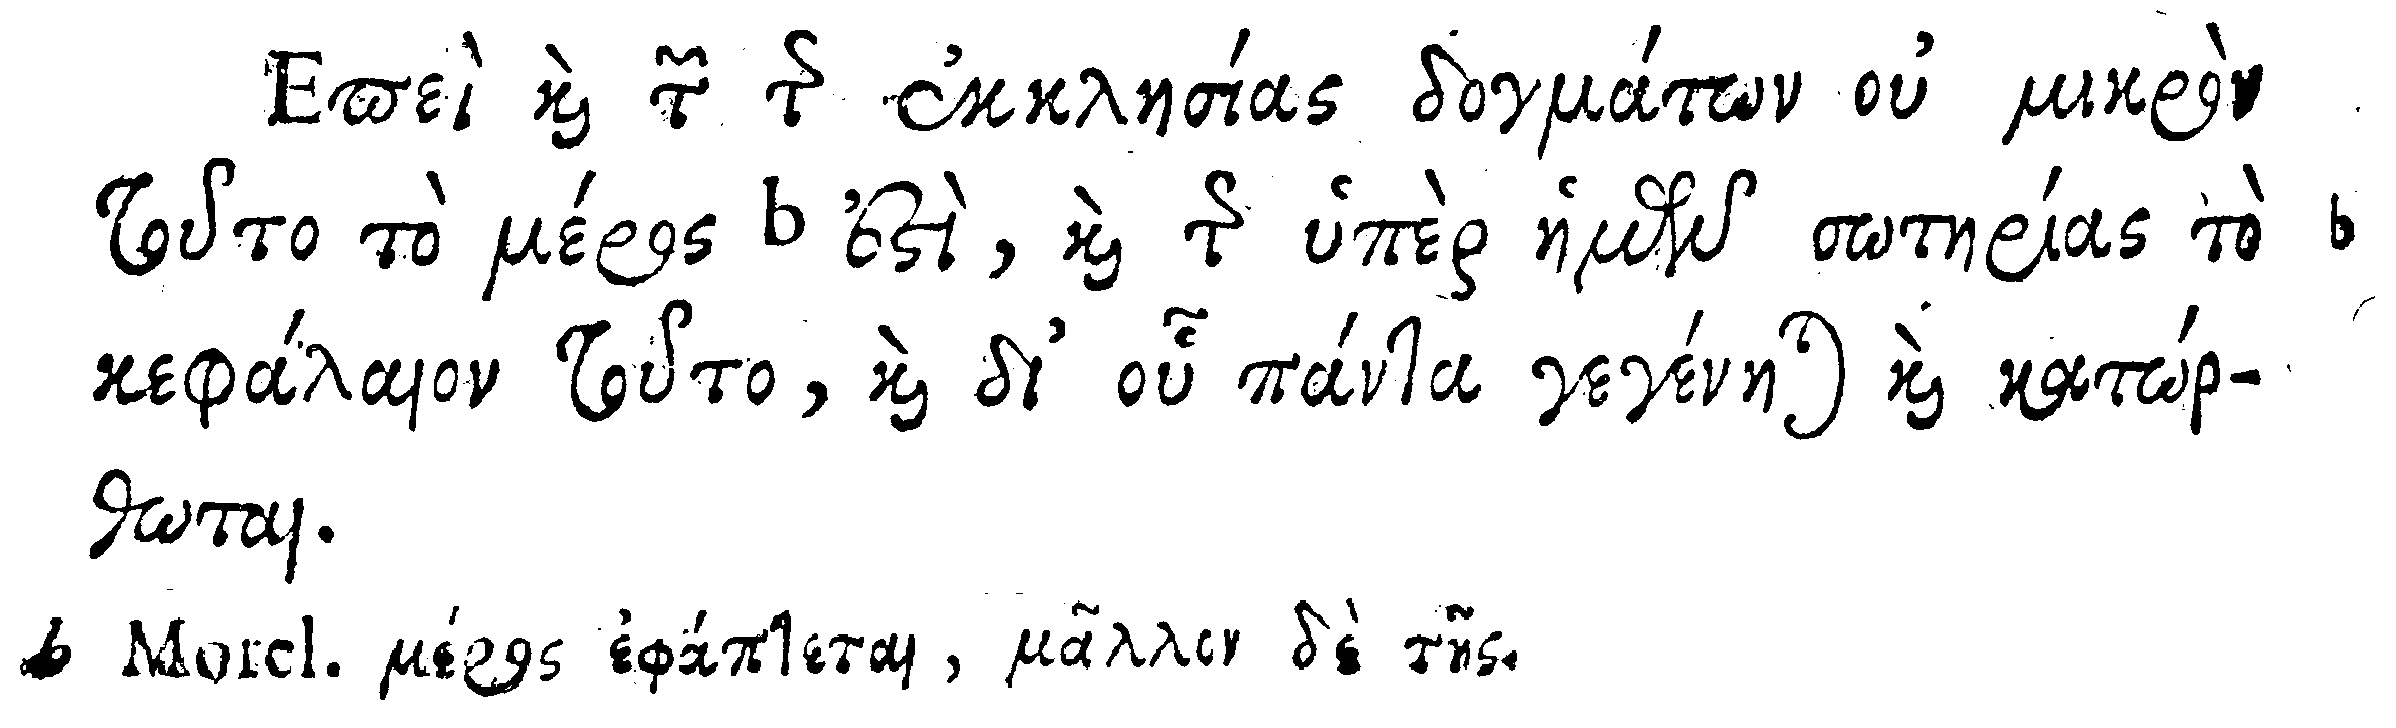 Επεὶ καὶ τῶν τῆς ἐκκλησίας δογμάτων οὐ μικρὸν
τοῦτο τὸ μέρος b ἐστὶ, καὶ τῆς ὑπὲρ ἡμῶν σωτηρίας τὸ b
κεφάλαιον τοῦτο, καὶ δι’ οὗ πάντα γεγένηται καὶ κατώρ-
θωται.
b Morel. μέρος ἐφάπτεται, μᾶλλον δὲ τῆς.